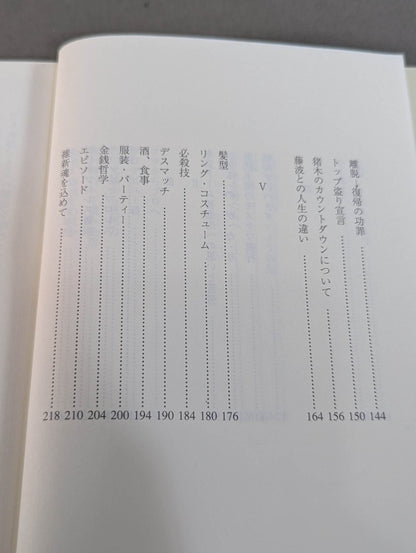 離脱・復帰の功罪……144
トップ盗り宣言……150
猪木のカウントダウンについて……156
藤波との人生の違い……164
V
髪型……176
リング・コスチューム……180
必殺技……184
デスマッチ……190
酒、食事……194
服装・パーティー……200
金銭哲学……204
エピソード……210
維新魂を込めて……218